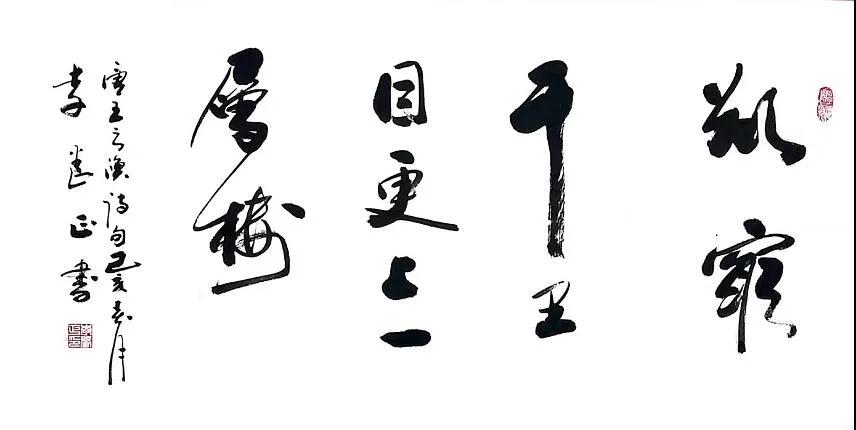 欲窮
千里
目更上一
層樓
唐王之渙詩句己亥春月
李正書